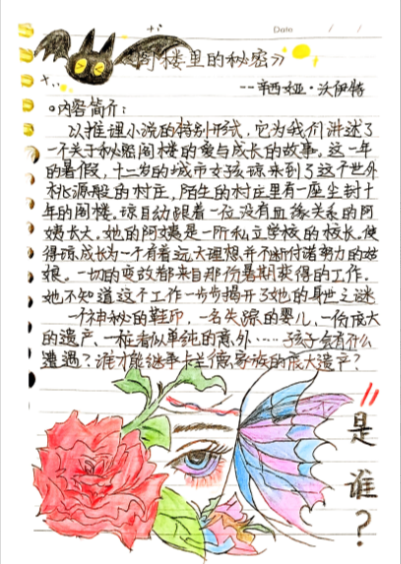 Date / /
《阁楼里的秘密》
--辛西娅·沃伊特
内容简介:
以推理小说的特别形式,它为我们讲述了
一个关于秘密阁楼的爱与成长的故事。这一年
的暑假,十二岁的城市女孩琼来到了这个世外
桃源般的村庄,陌生的村庄里有一座尘封十
年的阁楼。琼自幼跟着一位没有血缘关系的阿
姨长大。她的阿姨是一所私立学校的校长。使
得琼成长为一个有着远大理想,并不断付诸努力的姑
娘。一切的变故都来自那份暑期获得的工作。
她不知道这个工作一步步揭开了她的身世之谜
一个神秘的鞋印,一名失踪的婴儿,一份庞大
的遗产,一桩看似单纯的意外……孩子会有什么
遭遇?谁才能继承卡兰德家族的庞大遗产?
是谁?